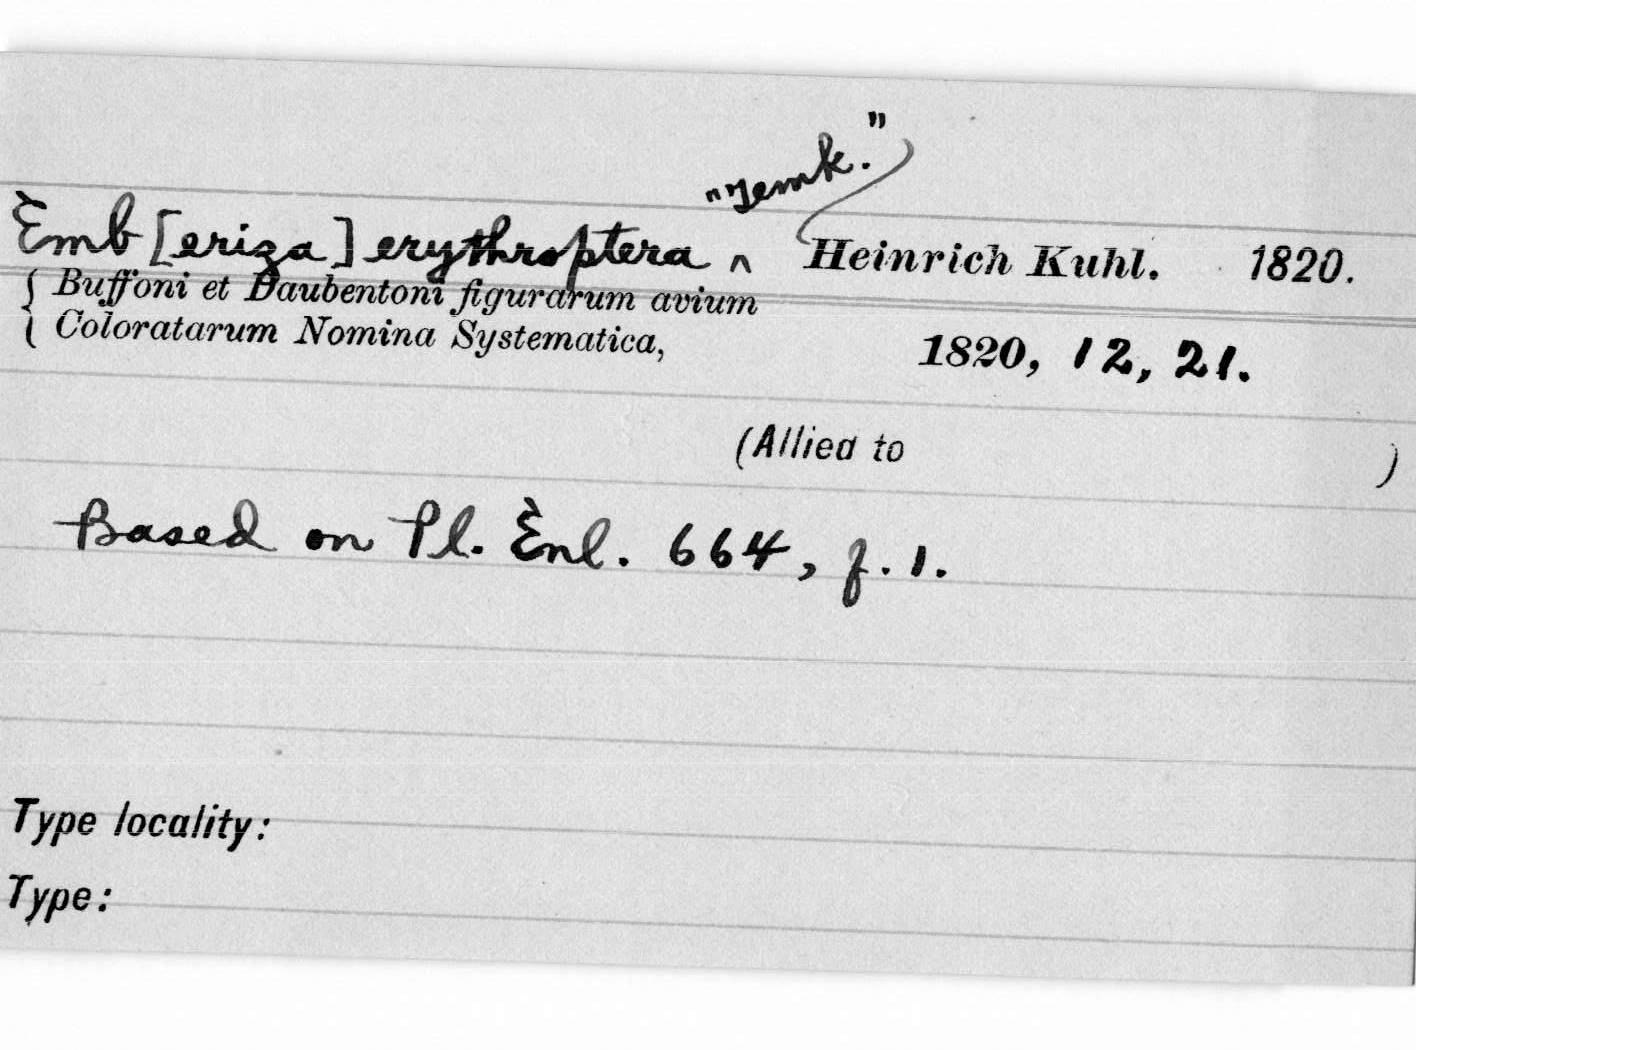 "Temk."
Emb[eriza] erythroptera ^ Heinrich Kuhl. 1820.
{ Buffoni et Daubentoni figurarum avium
{ Coloratarum Nomina Systematica, 1820, 12, 21.
(Allied to )
Based on Pl. Enl. 664, f. 1.
Type locality:
Type: